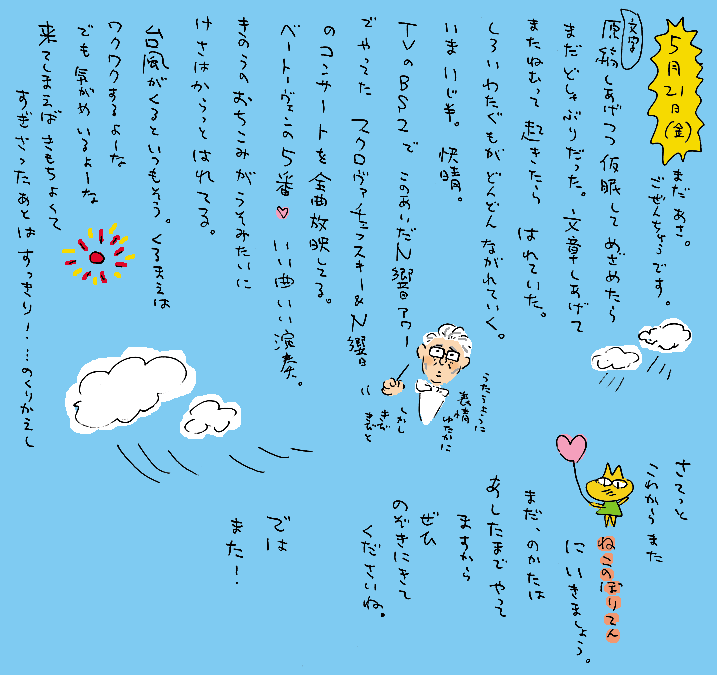 5月21日(金)
まだ あさ。
ごぜんちゅうです。
文字
原稿しあげつつ 仮眠して めざめたら
まだ どしゃぶりだった。文章しあげて
またねむって 起きたら はれていた。
しろいわたぐもが どんどん ながれていく。
いま いじ半。快晴。
TVの BS2 で このあいだ N響アワー
で やってた スクロヴァチェフスキー&N響
のコンサートを 全曲放映してる。
ベートーヴェンの 5番♥ いい曲いい演奏。
きのうの おちこみが うそみたいに
けさは からっと はれてる。
台風がくると いつもそう。くるまえは
ワクワクするよーな
でも 気がめいるよーな
来てしまえば きもちよくて
すぎさったあとは すっきりー・・・のくりかえし
うたうように
表情
ゆたかに
しかし
きび
きびと
さてっと
これから また
ねこのぼりてん
に いきましょう。
まだ、のかたは
あしたまで やって
ますから
ぜひ
のぞきにきて
くださいね。
では
また!